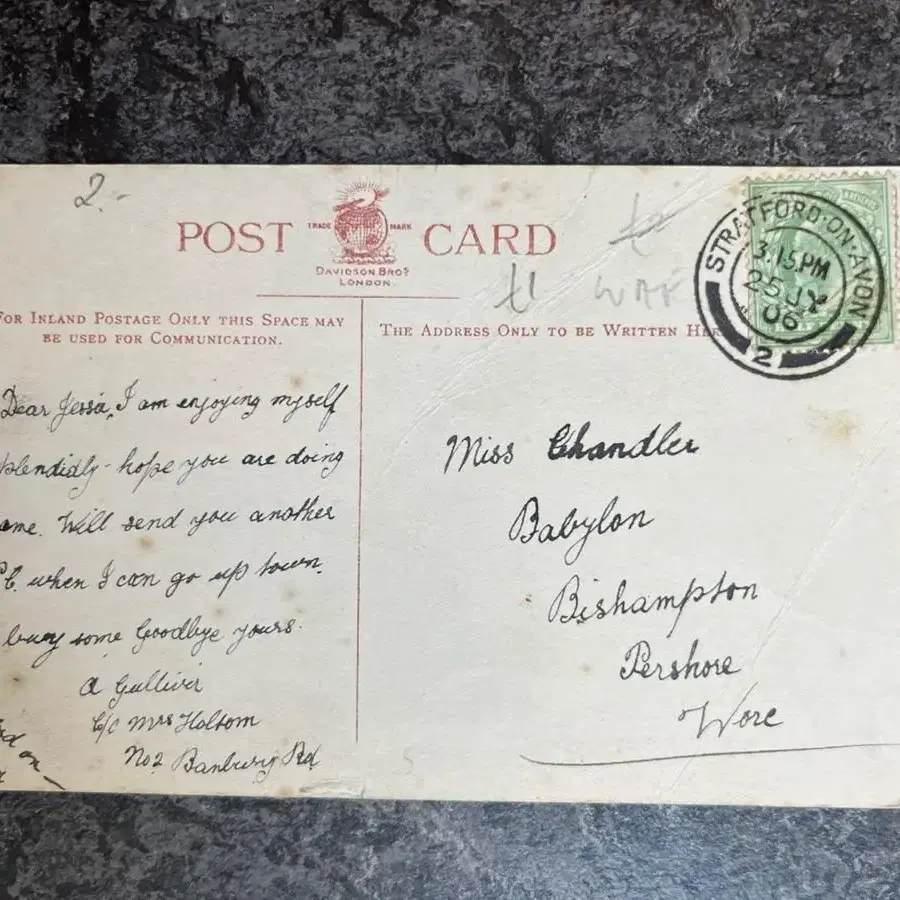 2.-
POST CARD
TRADE MARK
DAVIDSON BROS
LONDON.
£2
£1
STRATFORD-ON-AVON
3.15 PM
25 JY
06
2
FOR INLAND POSTAGE ONLY THIS SPACE MAY
BE USED FOR COMMUNICATION.
THE ADDRESS ONLY TO BE WRITTEN HER
Dear Jessie, I am enjoying myself
splendidly - hope you are doing
same. Will send you another
P.C. when I can go up town.
buy some Goodbye yours.
A Gulliver
C/o Mrs Holtom
No 2 Banbury Rd
on
Miss Chandler
Babylon
Bishampton
Pershore
Worc